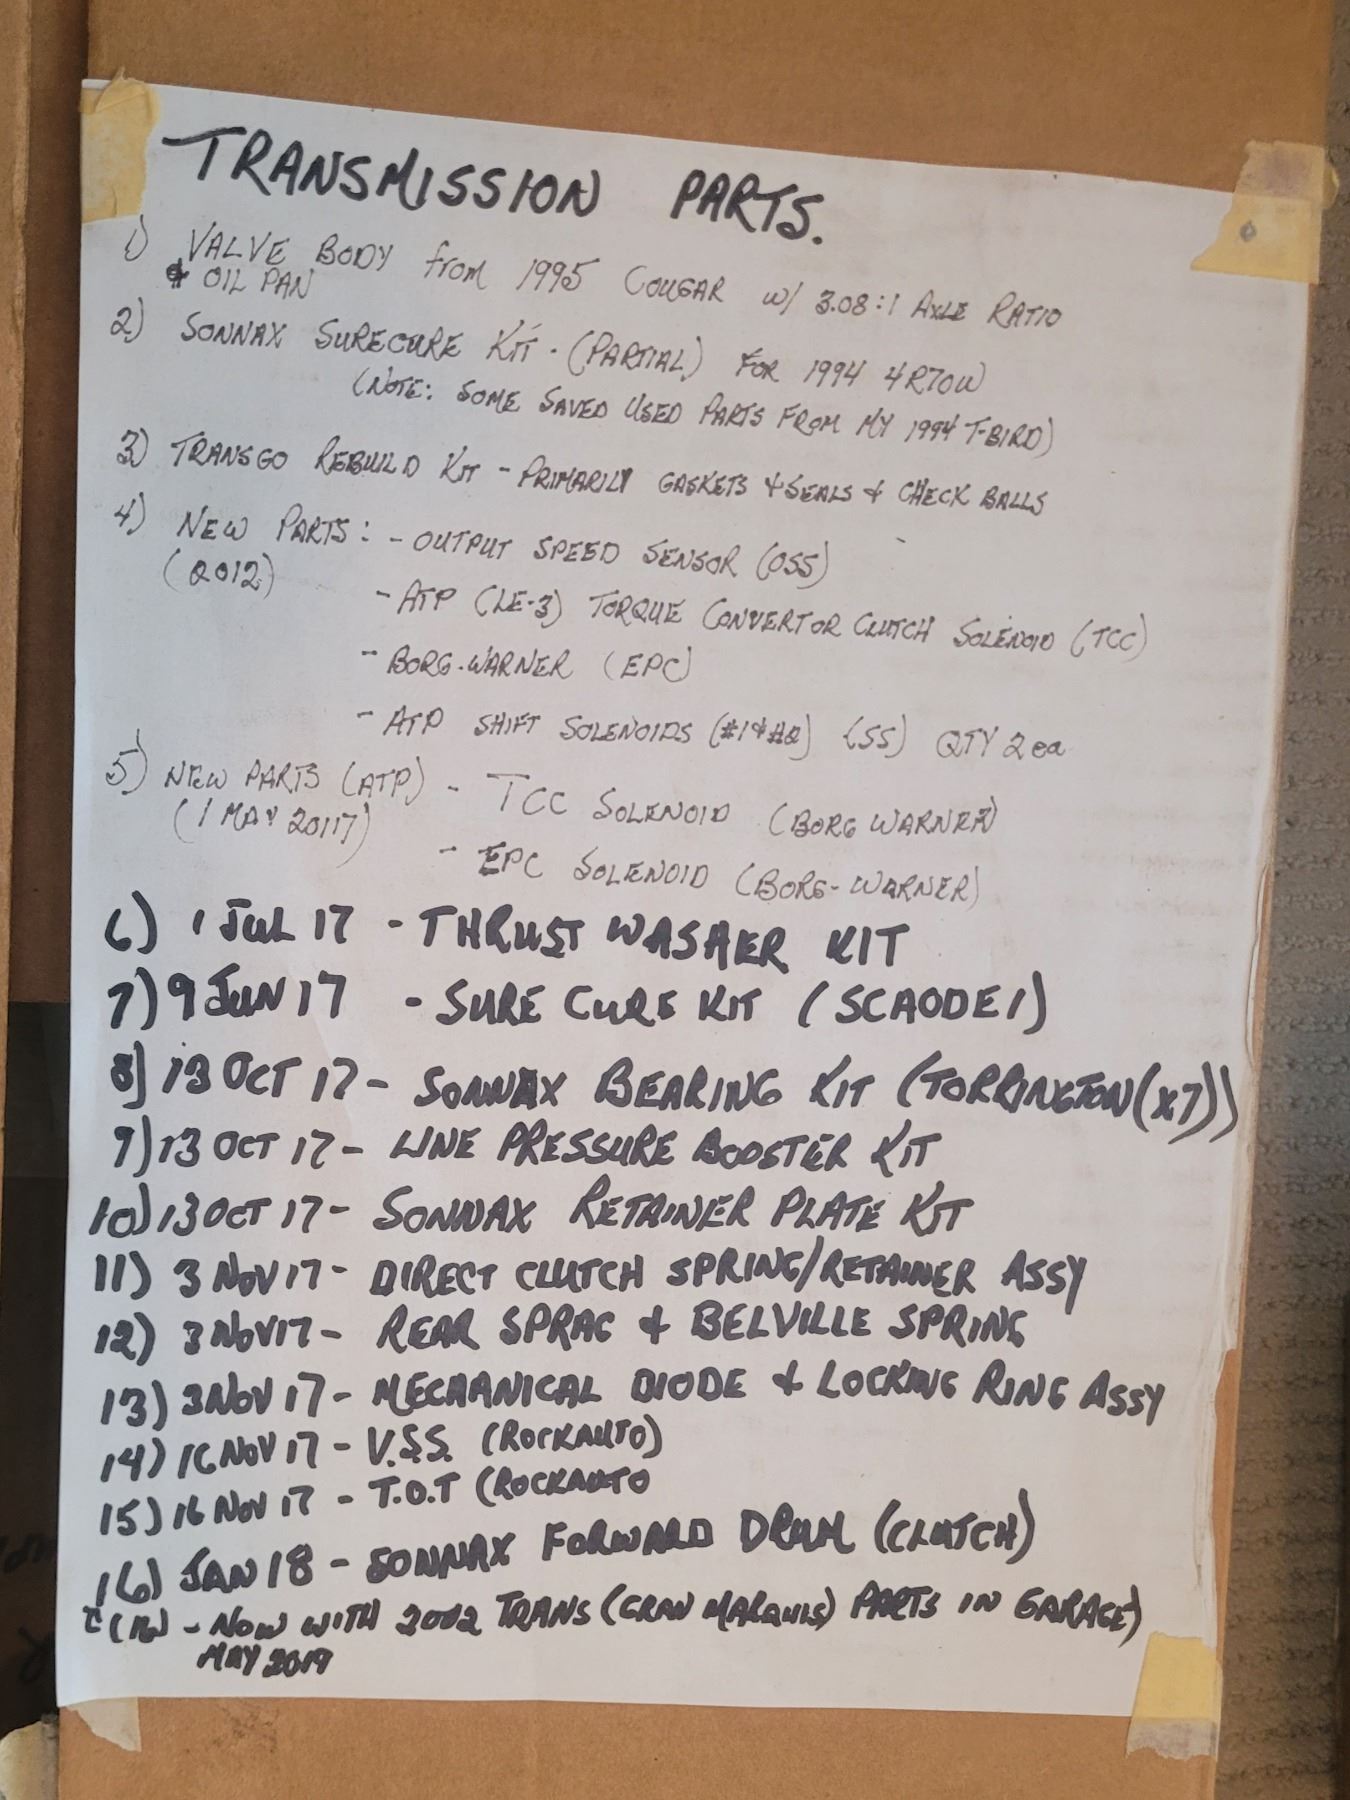 TRANSMISSION PARTS.
1) VALVE BODY from 1995 COUGAR w/ 3.08:1 AXLE RATIO
& OIL PAN
2) SONNAX SURECURE KIT - (PARTIAL) FOR 1994 4R70W
(NOTE: SOME SAVED USED PARTS FROM MY 1994 T-BIRD)
3) TRANSGO REBUILD KIT - PRIMARILY GASKETS & SEALS & CHECK BALLS
4) NEW PARTS: - OUTPUT SPEED SENSOR (OSS)
(2012)
- ATP (LE-3) TORQUE CONVERTOR CLUTCH SOLENOID (TCC)
- BORG-WARNER (EPC)
- ATP SHIFT SOLENOIDS (#1&#2) (SS) QTY 2 ea
5) NEW PARTS (ATP) - TCC SOLENOID (BORG WARNER)
(1 MAY 20117)
- EPC SOLENOID (BORG-WARNER)
6) 1 JUL 17 - THRUST WASHER KIT
7) 9 JUN 17 - SURE CURE KIT (SCAODE1)
8) 13 OCT 17 - SONNAX BEARING KIT (TORRINGTON (x7))
9) 13 OCT 17 - LINE PRESSURE BOOSTER KIT
10) 13 OCT 17 - SONNAX RETAINER PLATE KIT
11) 3 NOV 17 - DIRECT CLUTCH SPRING/RETAINER ASSY
12) 3 NOV 17 - REAR SPRAG & BELVILLE SPRING
13) 3 NOV 17 - MECHANICAL DIODE & LOCKING RING ASSY
14) 16 NOV 17 - V.S.S. (ROCKAUTO)
15) 16 NOV 17 - T.O.T (ROCKAUTO
16) JAN 18 - SONNAX FORWARD DRUM (CLUTCH)
- NOW WITH 2002 TRANS (GRAN MARQUIS) PARTS IN GARAGE)
MAY 2019